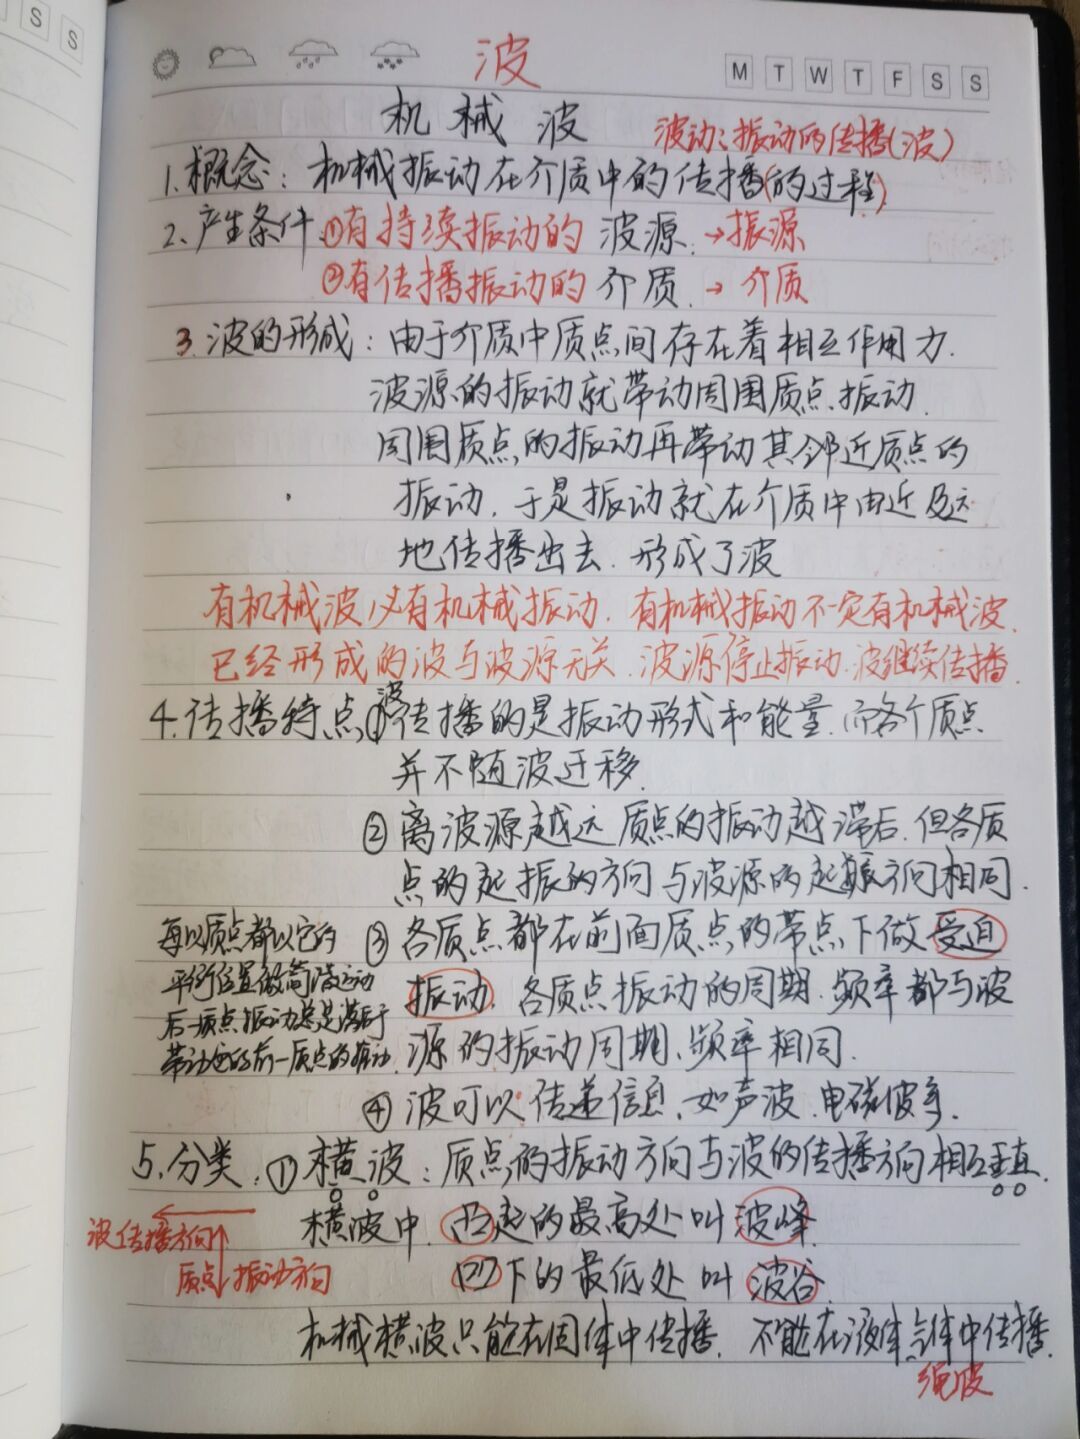 S S
波
M T W T F S S
机械波
波动：振动的传播(波)
1.概念：机械振动在介质中的传播(的过程)
2、产生条件①有持续振动的 波源.→振源
②有传播振动的 介质.→介质
3.波的形成：由于介质中质点间存在着相互作用力.
波源的振动就带动周围质点振动.
周围质点的振动再带动其邻近质点的
振动.于是振动就在介质中由近及远
地传播出去.形成了波
有机械波必有机械振动.有机械振动不一定有机械波.
已经形成的波与波源无关.波源停止振动.波继续传播.
4.传播特点①波传播的是振动形式和能量.而各个质点
并不随波迁移.
②离波源越远 质点的振动越滞后.但各质
点的起振的方向与波源的起振方向相同.
③各质点都在前面质点的带点下做受迫
振动.各质点振动的周期.频率都与波
源的振动周期、频率相同.
每以质点都以它的
平衡位置做简谐运动
后一质点振动总是滞后于
带动它的前一质点的振动.
④波可以传递信息.如声波.电磁波等.
5.分类：①横波：质点的振动方向与波的传播方向相互垂直.
横波中.凸起的最高处叫波峰.
凹下的最低处叫波谷.
波传播方向
质点振动方向
机械横波只能在固体中传播.不能在液体气体中传播.
绳波